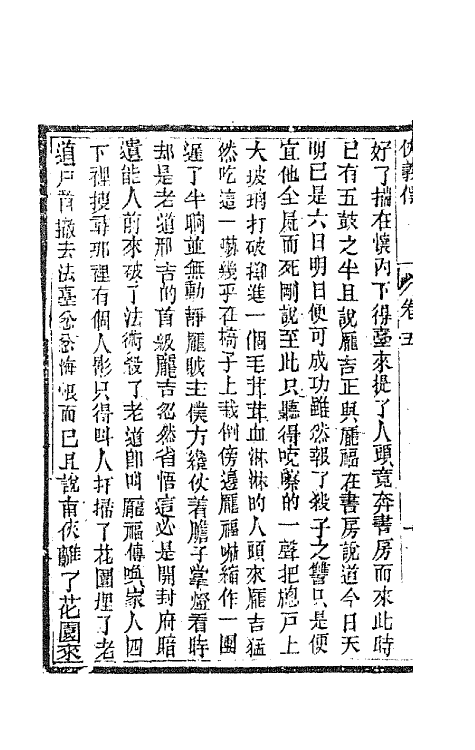 俠義傳 卷五
好了揣在懷內下得臺來提了人頭竟奔書房而來此時
已有五鼓之半且說龐吉正與龐福在書房說道今日天
明已是六日明日便可成功雖然報了殺子之讐只是便
宜他全屍而死剛說至此只聽得吱嚓的一聲把窗戶上
大玻璃打破擲進一個毛茸茸血淋淋的人頭來龐吉猛
然吃這一嚇幾乎在椅子上栽倒傍邊龐福嚇縮作一團
遲了半晌並無動靜龐賊主僕方纔仗着膽子掌燈看時
却是老道邢吉的首級龐吉忽然省悟這必是開封府暗
遣能人前來破了法術殺了老道卽叫龐福傳喚家人四
下裡搜尋那裡有個人影只得叫人打掃了花園埋了老
道尸首撤去法臺忿忿悔恨而已且說南俠離了花園來